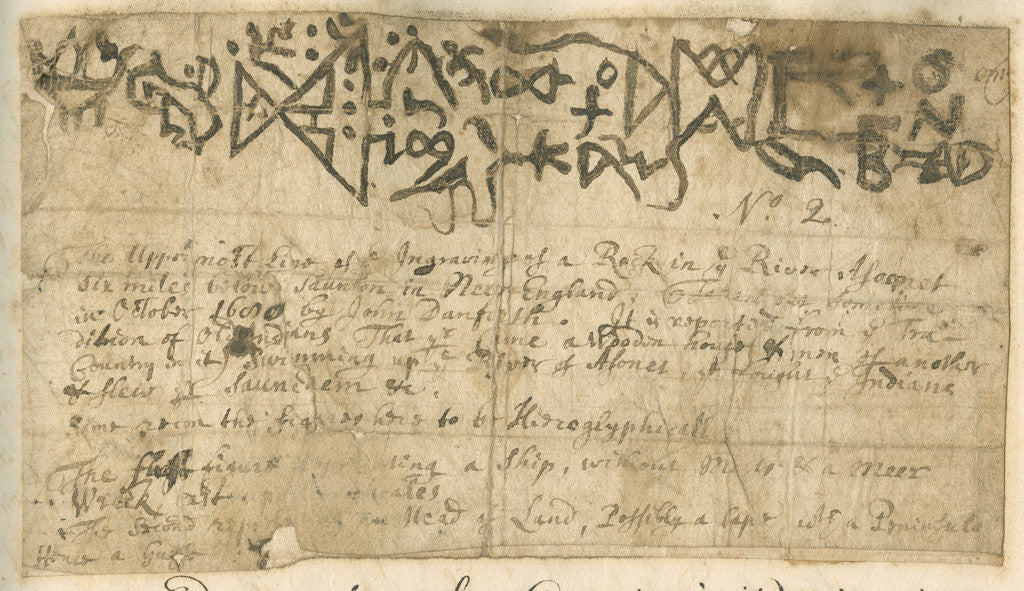 No 2
The Uppermost Line of ye Ingraving of a Rock in ye River Asoonet
Six miles below Taunton in New England. Taken out sometime
in October 1680 by John Danforth. It is reported from ye Tra-
dition of Old Indians That yr came a Wooden house & men of another
Country in it, Swimming up ye River of Asonet, yt fought ye Indians
& slew yr Saunchem &c.
Some recon the figures here to be Hieroglyphicall
The first figure representing a Ship, without Masts & a meer
Wreck cast
The Second an Head of Land, Possibly a Cape with a Peninsula
Hence a Gulfe